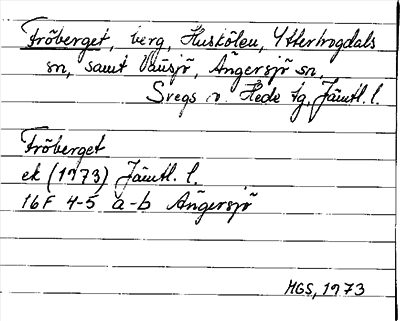 Fröberget, berg, Huskölen, Ytterhogdals
sn, samt Vänsjö, Ängersjö sn.
Svegs o. Hede tg, Jämtl. l.
Fröberget
ek (1973) Jämtl. l.
16F 4-5 a-b Ängersjö
MGS, 1973